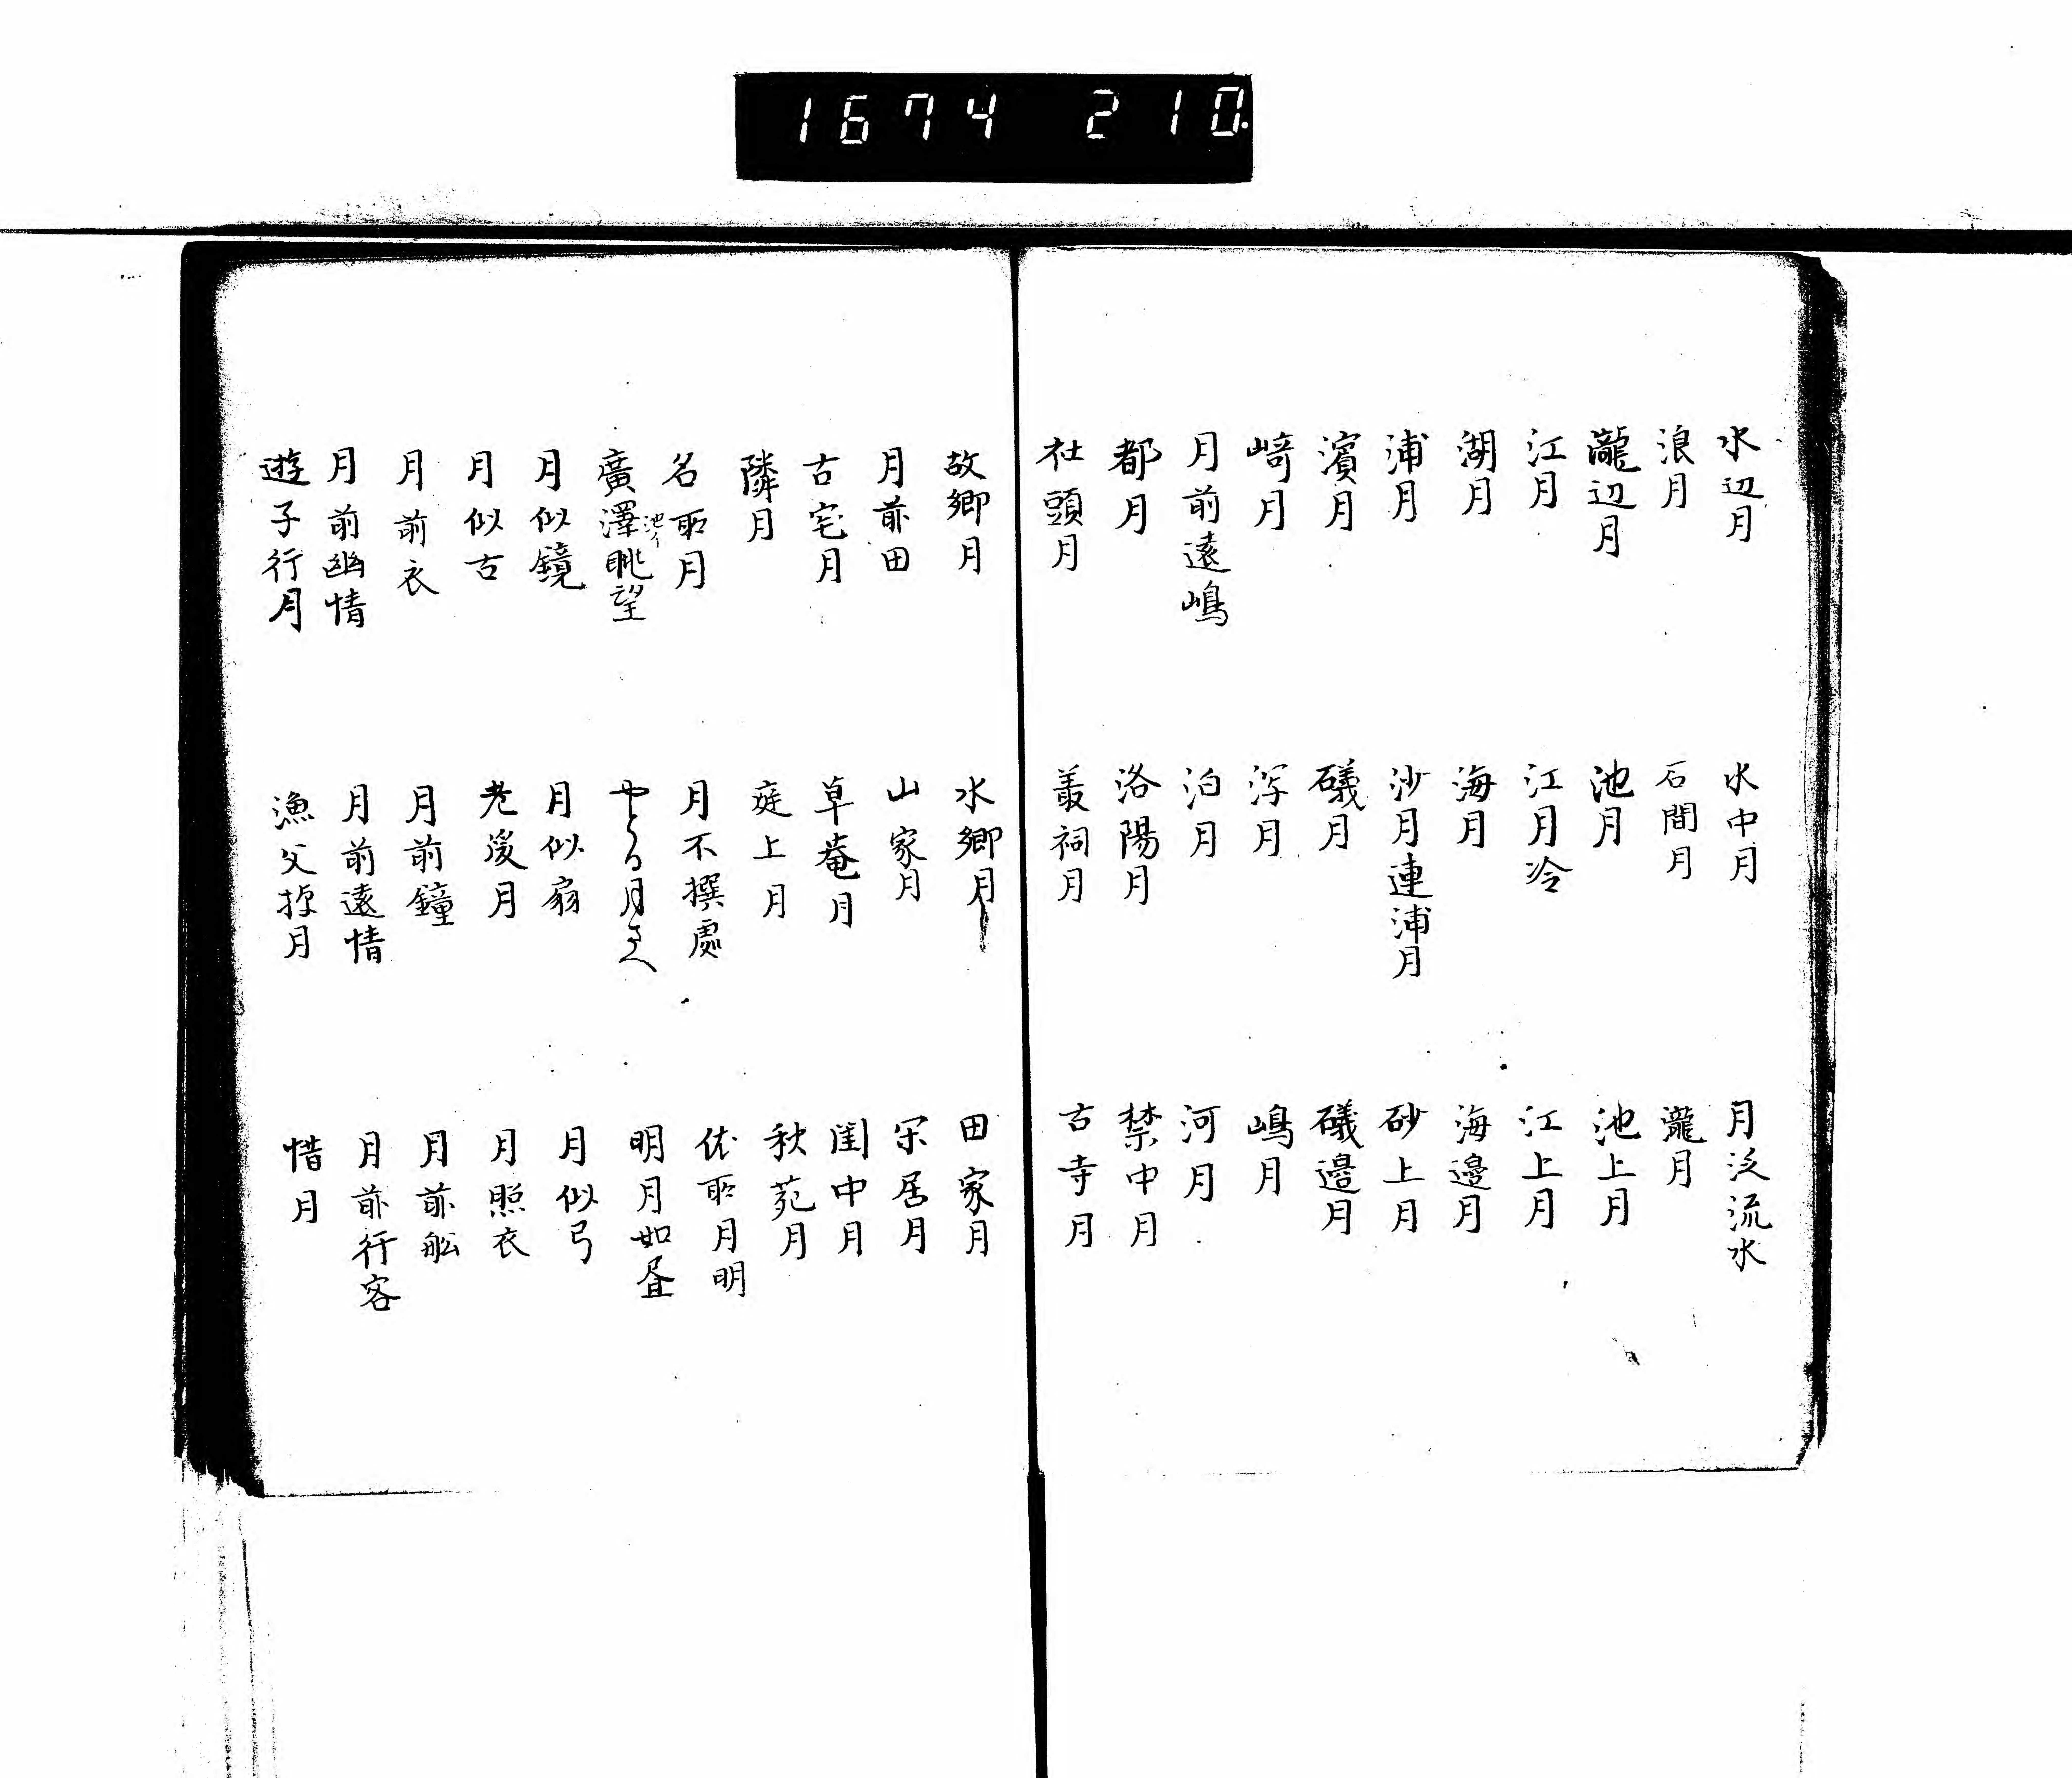 1674 210.
水辺月 水中月 月泛流水
浪月 石間月 瀧月
瀧辺月 池月 池上月
江月 江月冷 江上月
湖月 海月 海邉月
浦月 沙月連浦月 砂上月
濱月 礒月 礒邉月
﨑月 浮月 嶋月
月前遠嶋 泊月 河月
都月 洛陽月 禁中月
社頭月 叢祠月 古寺月
故郷月 水郷月 田家月
月前田 山家月 閑居月
古宅月 草菴月 閨中月
隣月 庭上月 秋苑月
名所月 月不撰處 依所月明
池イ
廣澤眺望 やとる月さへ 明月如昼
月似鏡 月似扇 月似弓
月似古 老後月 月照衣
月前衣 月前鐘 月前舩
月前幽情 月前遠情 月前行客
遊子行月 漁父掉月 惜月